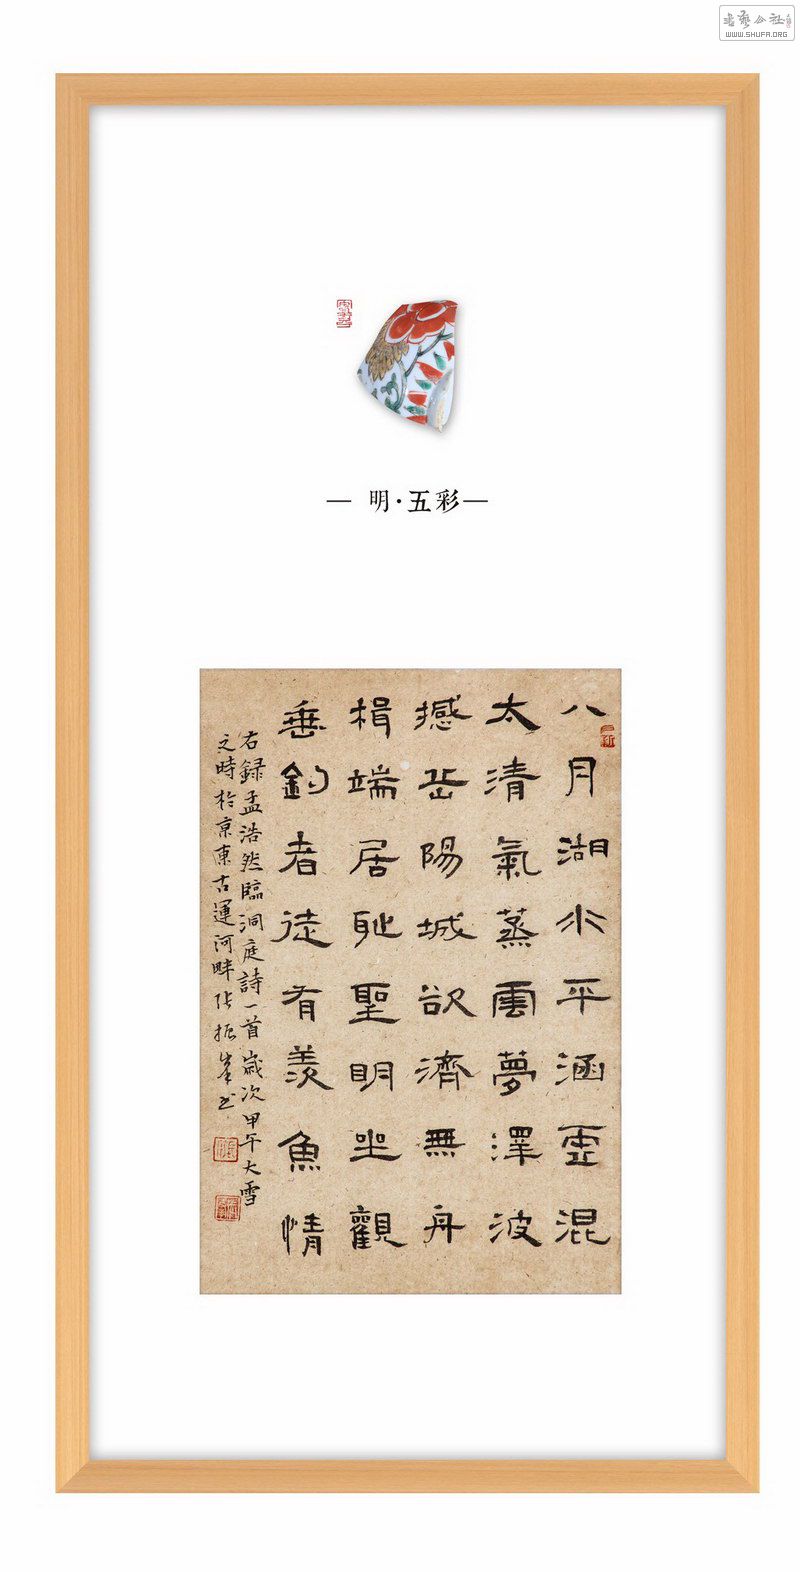 书艺公社
WWW.SHUFA.ORG
— 明·五彩 —
八月湖水平涵虛混
太清氣蒸雲夢澤波
撼岳陽城欲濟無舟
楫端居恥聖明坐觀
垂釣者徒有羨魚情
右録孟浩然臨洞庭詩一首歲次甲午大雪
之時於京東古運河畔張振峯书